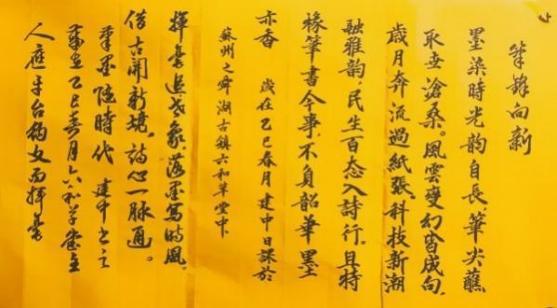 笔锋向新
墨染時光韵自長筆尖蘸
取世滄桑。風雲變幻皆成句，
歲月奔流過紙張，科技新潮
融雅韵，民生百态入詩行，且持
椽筆書今事，不負韶華墨
亦香 歲在乙巳春月建中日課於
蘇州之舜湖古鎮六和草堂中
揮毫追老象，落墨寫時風，
借古開新境，詩心一脉通。
筆墨随時代 建中书之
乙巳春月六和草堂主
人應平台約文而揮毫